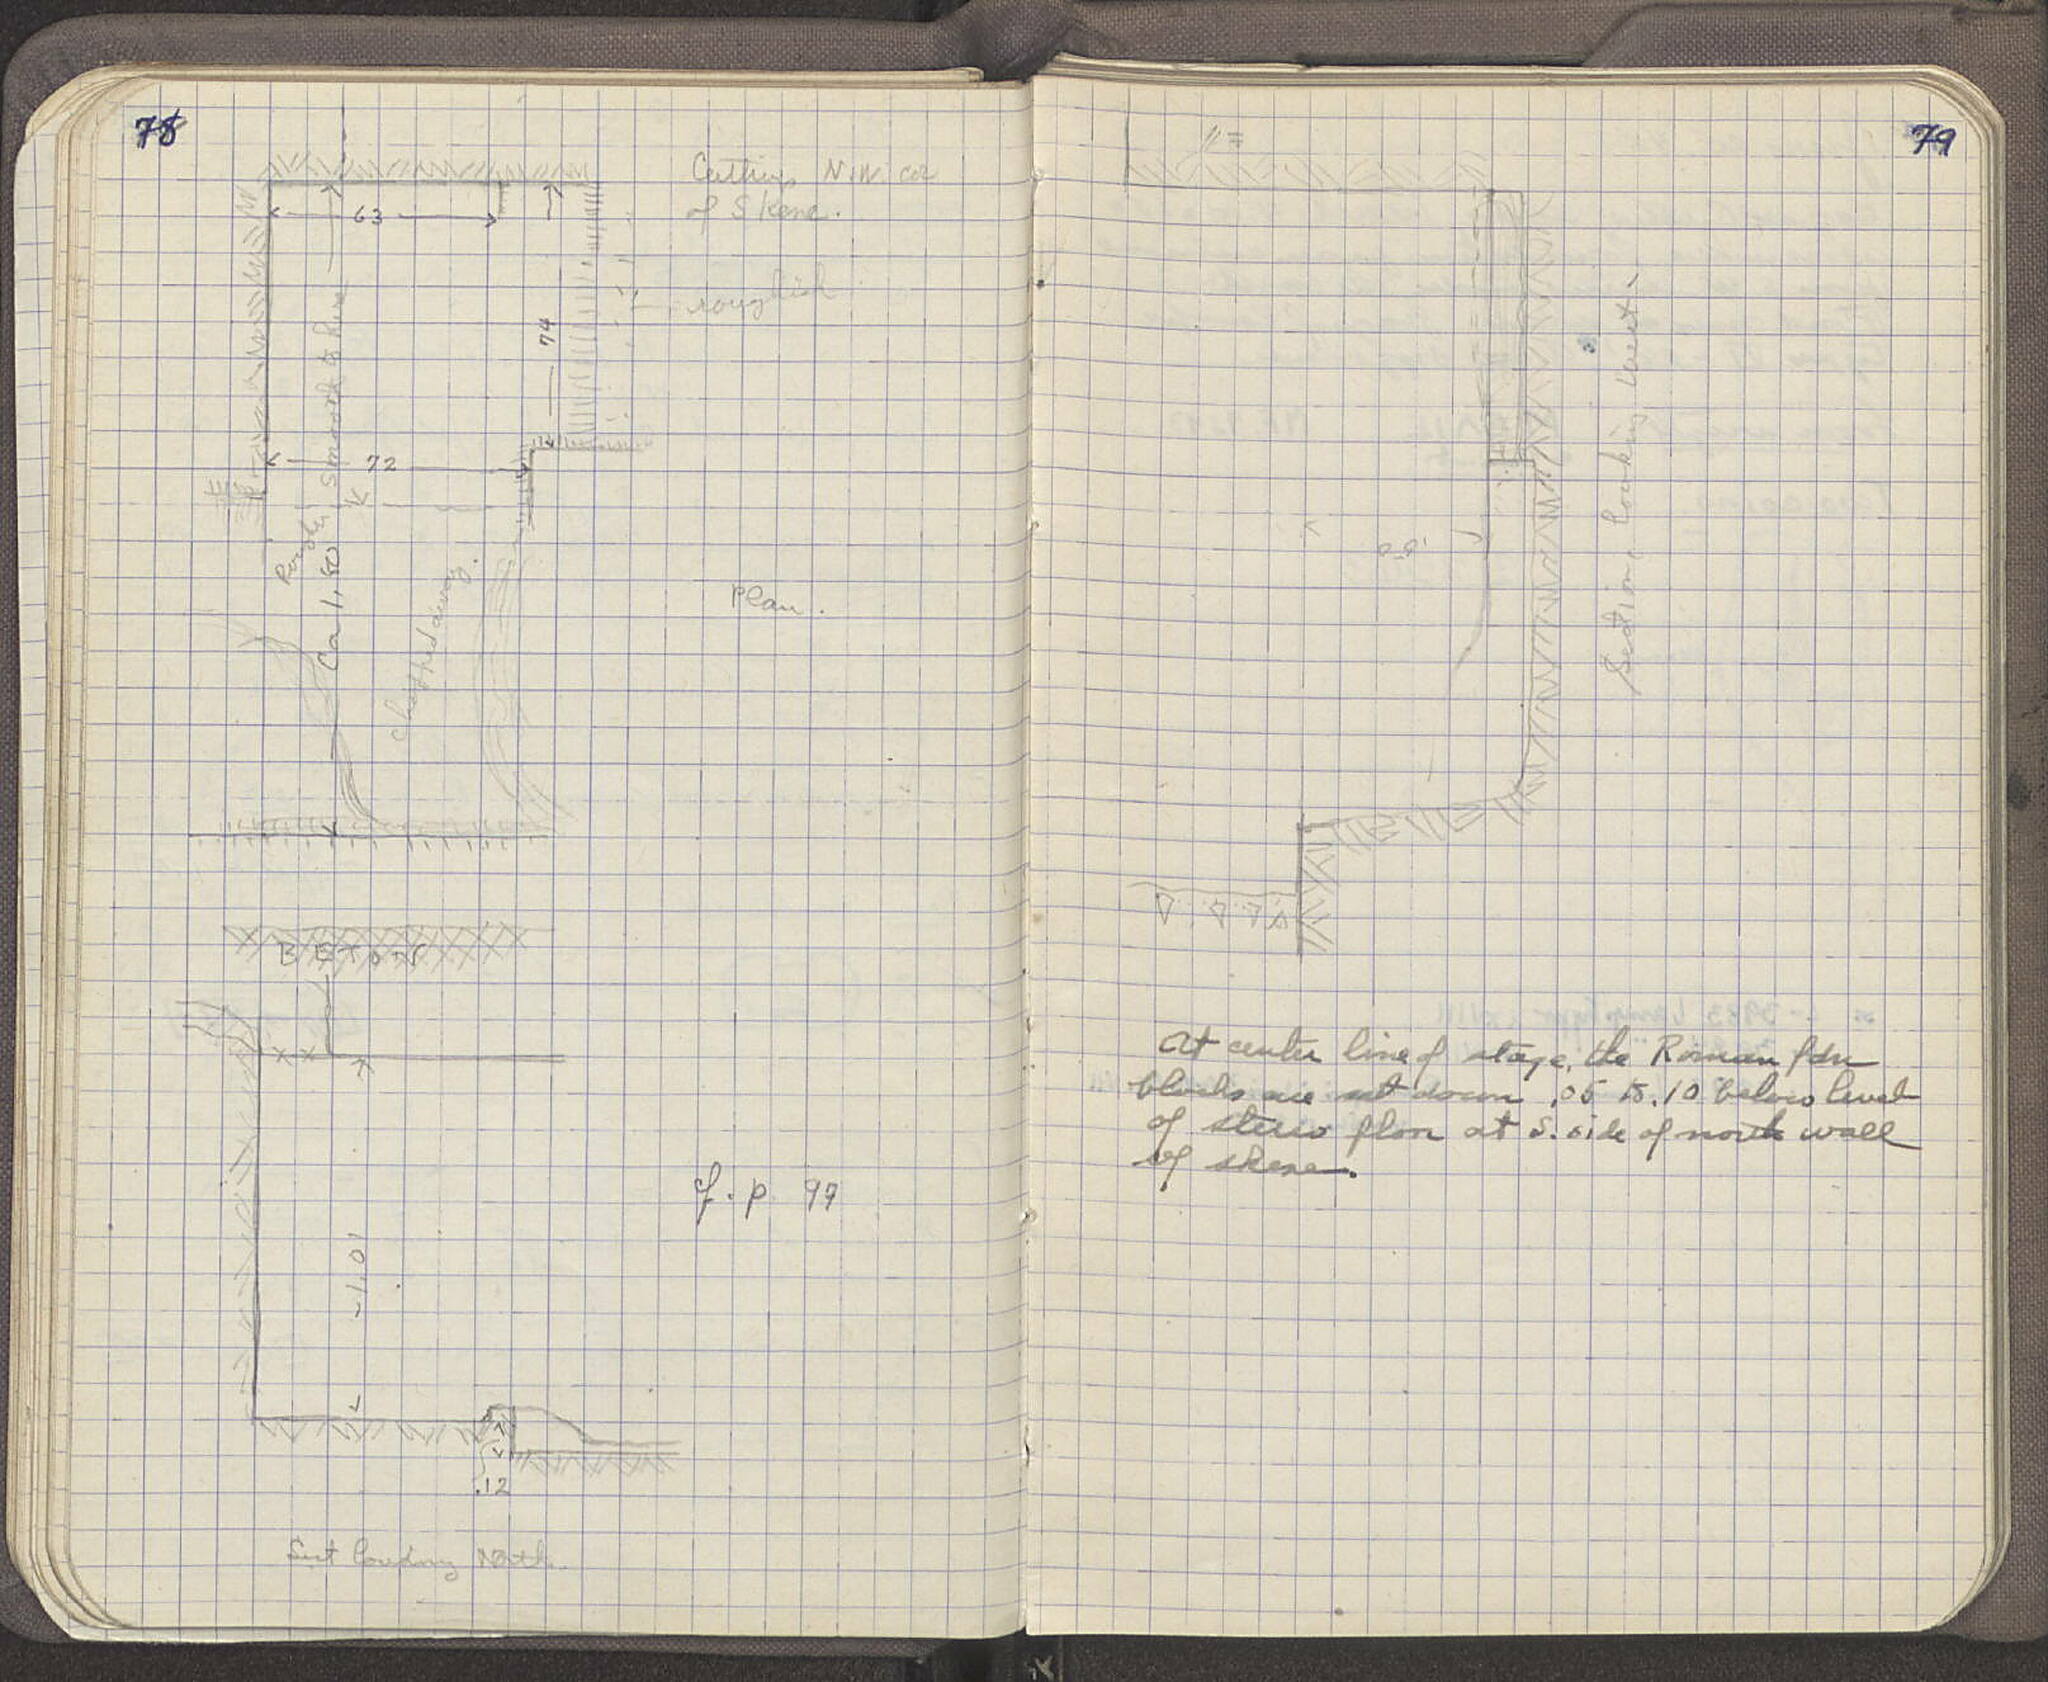 78
Cuttings N.W. cor
of Skene.
63
roughish
74
smooth to here
72
Rough
Ca 1,50
chopped away.
Plan.
BETON
cf. p 99
1,01
.12
Sect looking North.
79
Section looking West
At center line of stage, the Roman fdn
blocks are set down .05 to .10 below level
of stereo floor at S. side of north wall
of skene.